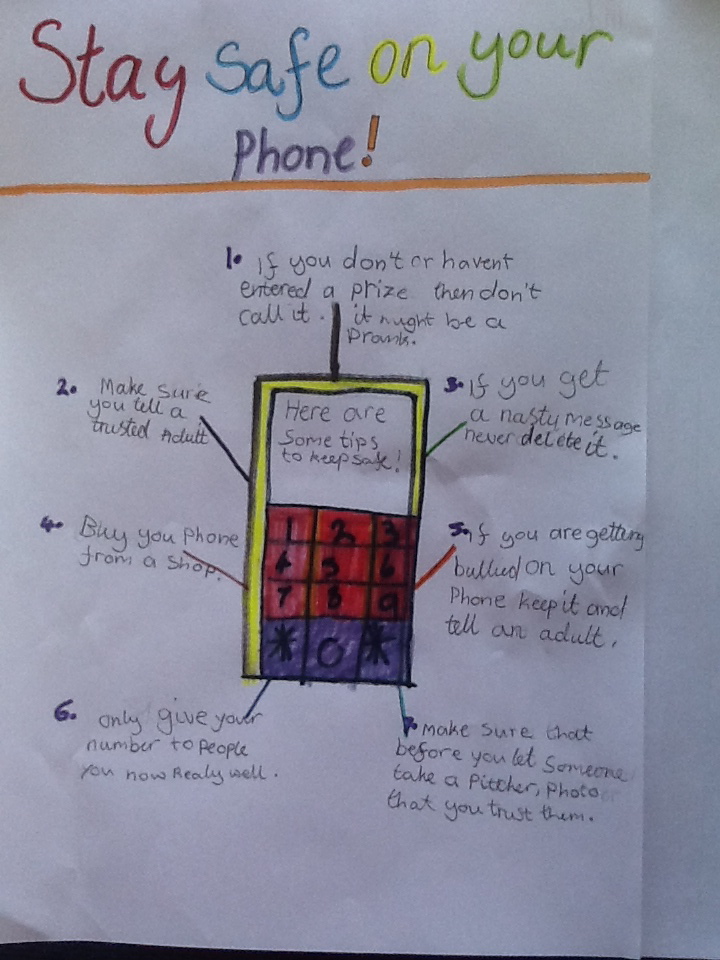 Stay safe on your
Phone!
1. If you don't or havent
entered a prize then don't
call it. it might be a
Prank.
2. Make sure
you tell a
trusted Adult
3. If you get
a nasty message
never delete it.
Here are
Some tips
to keep safe!
1 2 3
4 5 6
7 8 9
* 0 *
4. Buy you Phone
from a Shop.
5. If you are getting
bullied on your
Phone keep it and
tell an adult.
6. only give your
number to People
you now Realy well.
7. Make sure that
before you let Someone
take a Pittcher, Photo
that you trust them.